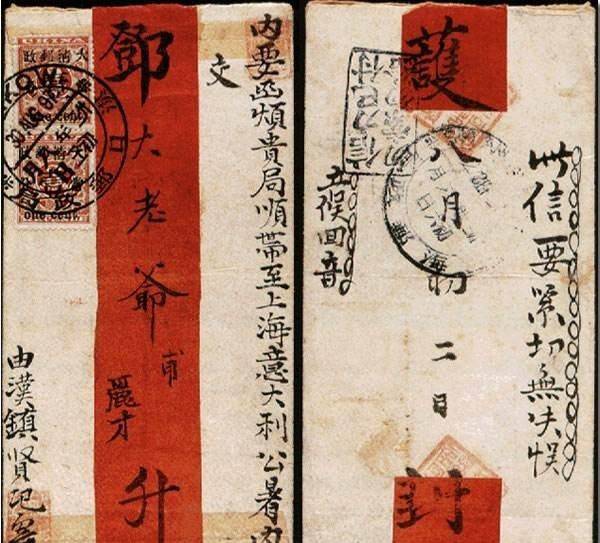 內要函煩貴局順帶至上海意大利公署內
交
鄧大老爺
甫
麗才
升
由漢鎮賢記
大清郵政
one cent.
one cent.
此信要緊切無失悮
護
八月初二日
封
立俟回音